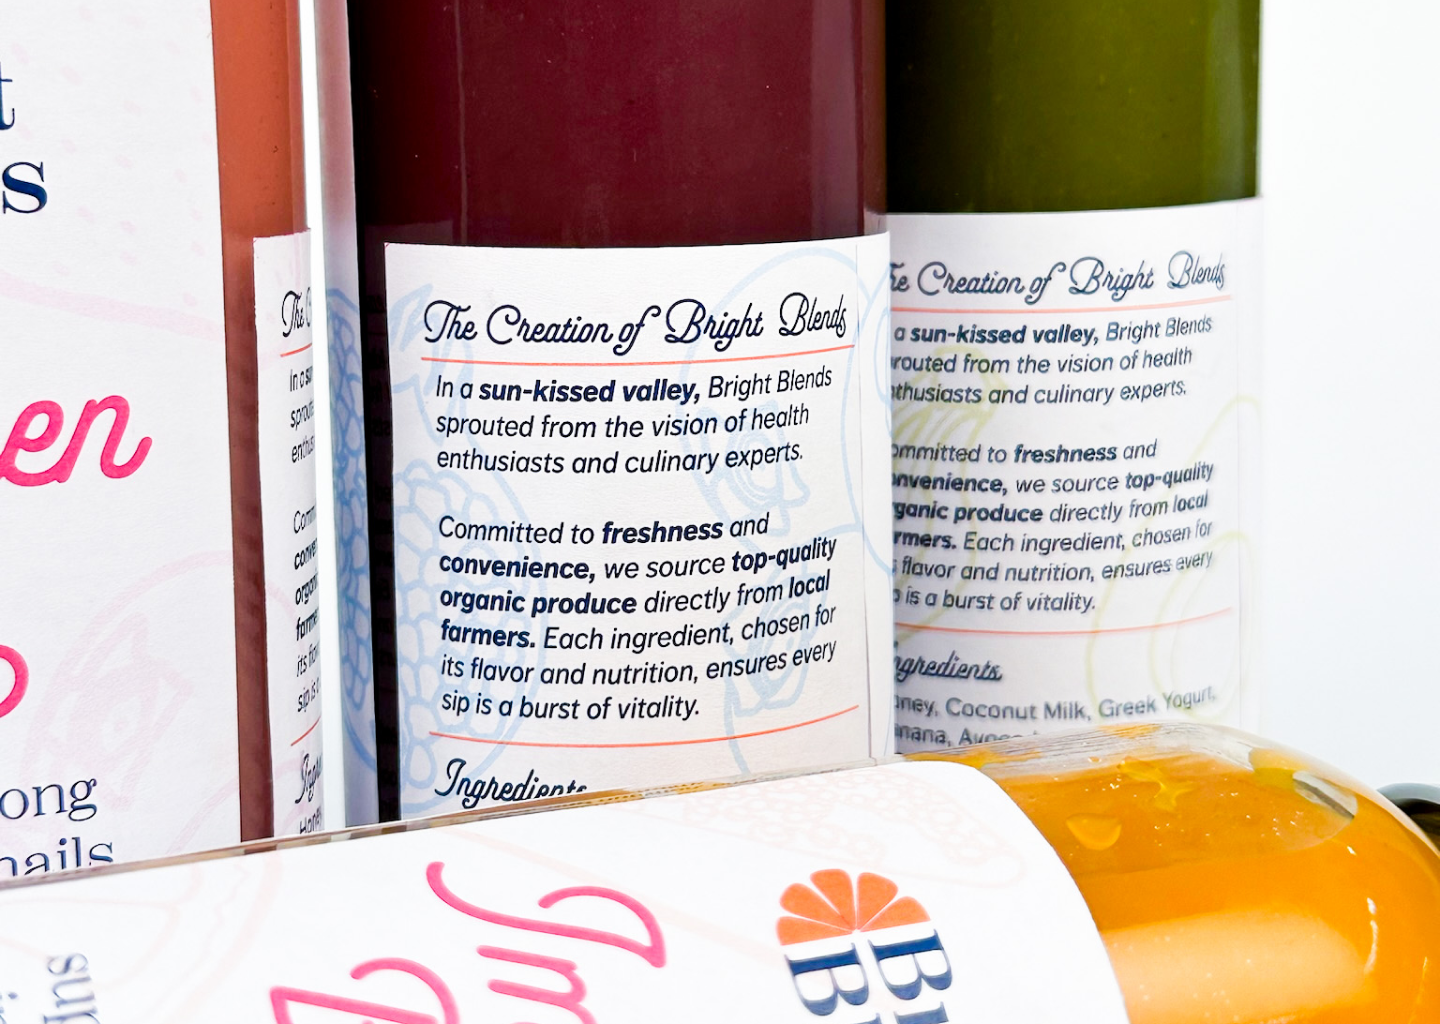 en
ong
nails
The Creation of Bright Blends
In a sun-kissed valley, Bright Blends
sprouted from the vision of health
enthusiasts and culinary experts.
Committed to freshness and
convenience, we source top-quality
organic produce directly from local
farmers. Each ingredient, chosen for
its flavor and nutrition, ensures every
sip is a burst of vitality.
Ingredients
Creation of Bright Blends
a sun-kissed valley, Bright Blends
routed from the vision of health
thusiasts and culinary experts.
mmitted to freshness and
nvenience, we source top-quality
ganic produce directly from local
rmers. Each ingredient, chosen for
flavor and nutrition, ensures every
is a burst of vitality.
ngredients
ney, Coconut Milk, Greek Yogurt,
The
In a su